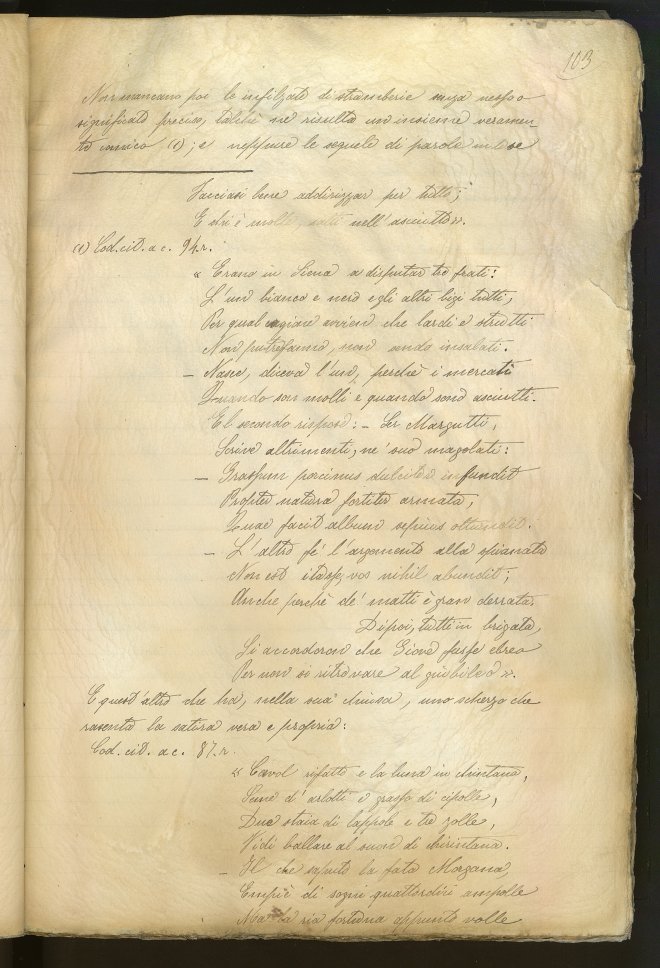 103
Non mancano poi le infilzate di stramberie senza nesso o
significato preciso, talchè ne risulta un insieme veramen-
te comico (1); e neppure le sequele di parole intese
Facciasi bene addirizzar per tutto;
E chi è molle, nell'asciutto».
(1) Cod. cit. a c. 94.r.
« Erano in Siena a disputar tre frati:
L'un bianco e nero e gli altri bigi tutti,
Per qual cagione avvien che lardi e strutti
Non putrefanno, non sendo insalati.
– Nasce, diceva l'un, perchè i mercati
Quando son molli e quando sono asciutti.
El secondo rispose: – Ser Margutti,
Scrive altrimenti, ne' suo magolati:
– Grassum porcinus dulciter infundit
Propter natura fortiter armata,
Quae facit album sepius ottundit.
– L'altro fe' l'argomento alla spianata
Non est ita, vos nihil abundit;
Anche perchè de' matti è gran derrata.
Dipoi, tutti in brigata,
Si accordoron che Giove fusse ebreo
Per non si ritrovare al giubileo».
E quest'altro che ha, nella sua chiusa, uno scherzo che
rasenta la satira vera e propria:
Cod. cit. a c. 87.r.
« Cavol rifatto e la luna in chintana,
Seme d'arlotti e grasso di cipolle,
Due staia di lappole e tre zolle,
Vidi ballare al suon di chirintana.
– Il che saputo la fata Morgana,
Empiè di sogni quattordici ampolle
Ma la ria fortuna appunto volle